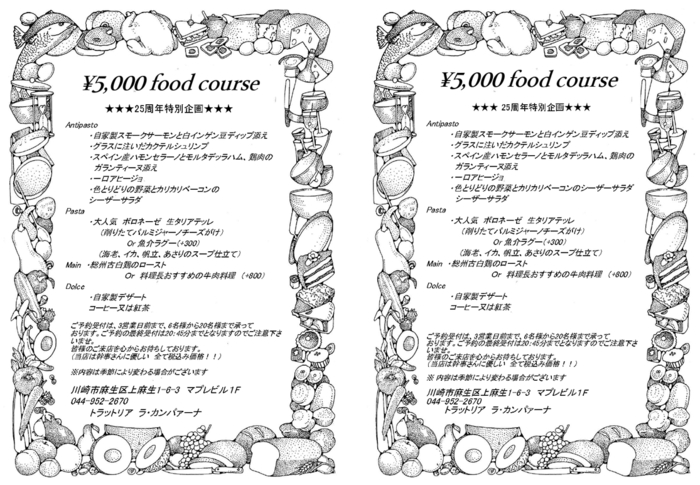 ¥5,000 food course
★★★25周年特別企画★★★
Antipasto
・自家製スモークサーモンと白インゲン豆ディップ添え
・グラスに注いだカクテルシュリンプ
・スペイン産ハモンセラーノとモルタデッラハム、鶏肉の
ガランティーヌ添え
・一口アヒージョ
・色とりどりの野菜とカリカリベーコンの
シーザーサラダ
Pasta
・大人気 ボロネーゼ 生タリアテッレ
(削りたてパルミジャーノチーズがけ)
Or 魚介ラグー(+300)
(海老、イカ、帆立、あさりのスープ仕立て)
Main ・総州古白鶏のロースト
Or 料理長おすすめの牛肉料理 (+800)
Dolce
・自家製デザート
コーヒー又は紅茶
ご予約受付は、3営業日前まで、6名様から20名様まで承って
おります。ご予約の最終受付は20:45分までとなりますのでご注意下さ
いませ。
皆様のご来店を心からお待ちしております。
(当店は幹事さんに優しい 全て税込み価格!!)
※内容は季節により変わる場合がございます
川崎市麻生区上麻生1-6-3 マプレビル1F
044-952-2670
トラットリア ラ・カンパァーナ
¥5,000 food course
★★★ 25周年特別企画★★★
Antipasto
・自家製スモークサーモンと白インゲン豆ディップ添え
・グラスに注いだカクテルシュリンプ
・スペイン産ハモンセラーノとモルタデッラハム、鶏肉の
ガランティーヌ添え
・一口アヒージョ
・色とりどりの野菜とカリカリベーコンのシーザーサラダ
シーザーサラダ
Pasta
・大人気 ボロネーゼ 生タリアテッレ
(削りたてパルミジャーノチーズがけ)
Or 魚介ラグー(+300)
(海老、イカ、帆立、あさりのスープ仕立て)
Main ・総州古白鶏のロースト
Or 料理長おすすめの牛肉料理 (+800)
Dolce
・自家製デザート
コーヒー又は紅茶
ご予約受付は、3営業日前まで、6名様から20名様まで承って
おります。ご予約の最終受付は20:45分までとなりますのでご注意下さ
いませ。
皆様のご来店を心からお待ちしております。
(当店は幹事さんに優しい 全て税込み価格!!)
※ 内容は季節により変わる場合がございます
川崎市麻生区上麻生1-6-3 マプレビル1F
044-952-2670
トラットリア ラ・カンパァーナ